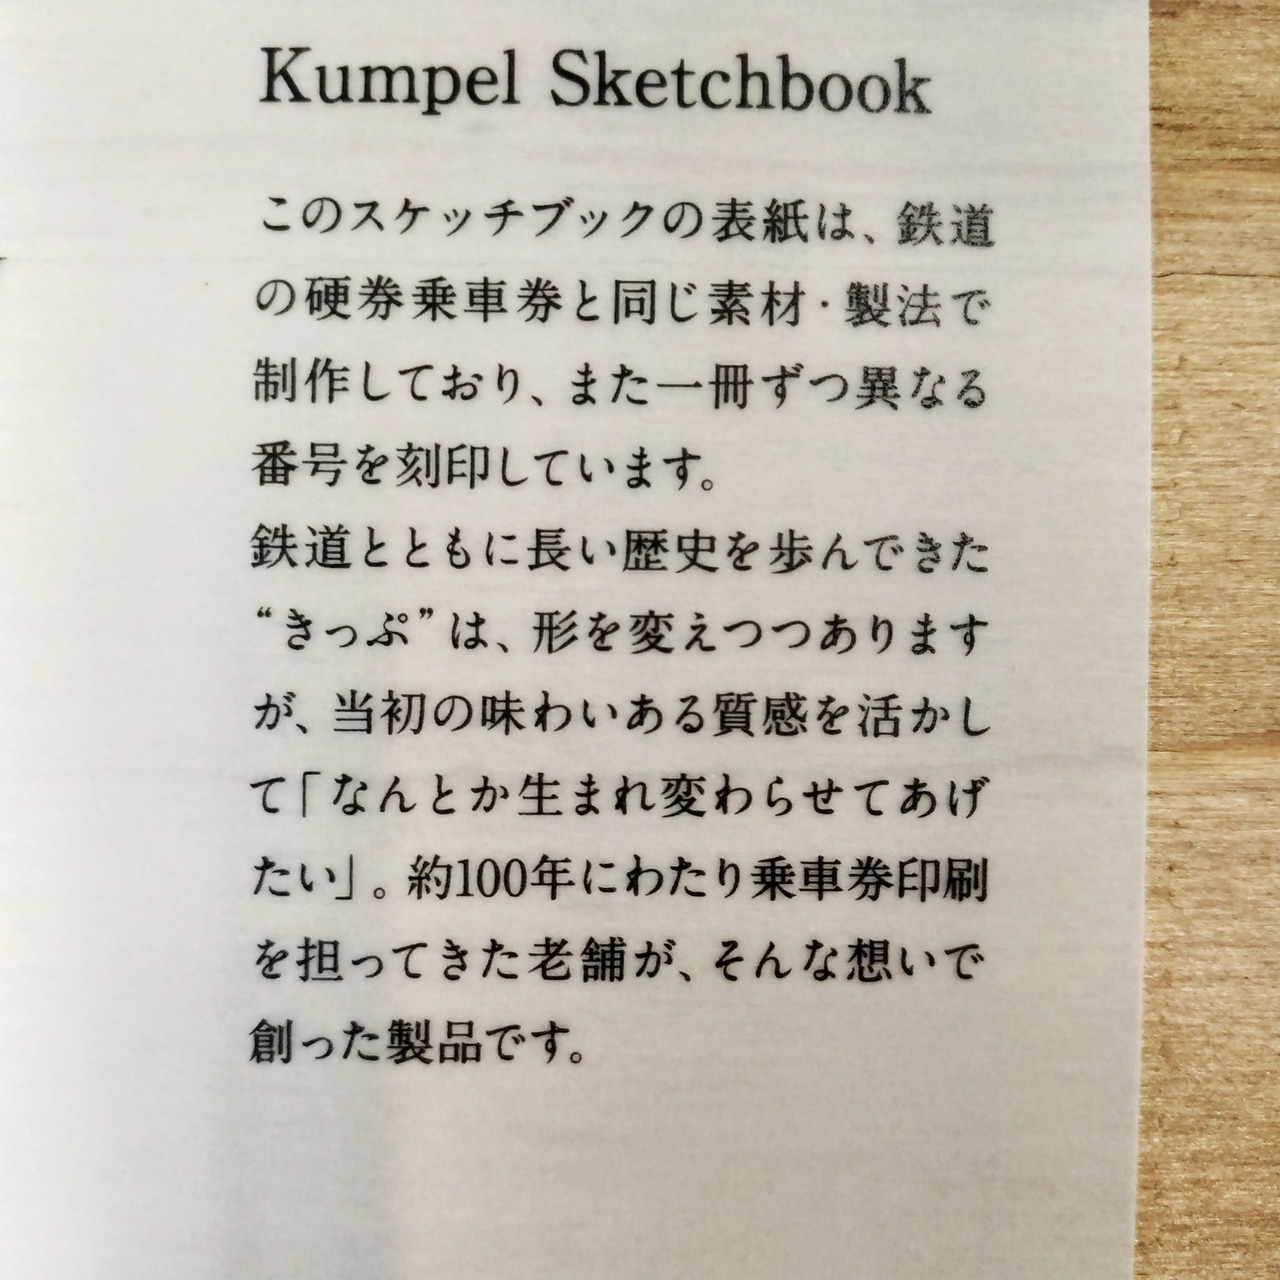 Kumpel Sketchbook
このスケッチブックの表紙は、鉄道
の硬券乗車券と同じ素材・製法で
制作しており、また一冊ずつ異なる
番号を刻印しています。
鉄道とともに長い歴史を歩んできた
“きっぷ”は、形を変えつつあります
が、当初の味わいある質感を活かし
て「なんとか生まれ変わらせてあげ
たい」。約100年にわたり乗車券印刷
を担ってきた老舗が、そんな想いで
創った製品です。